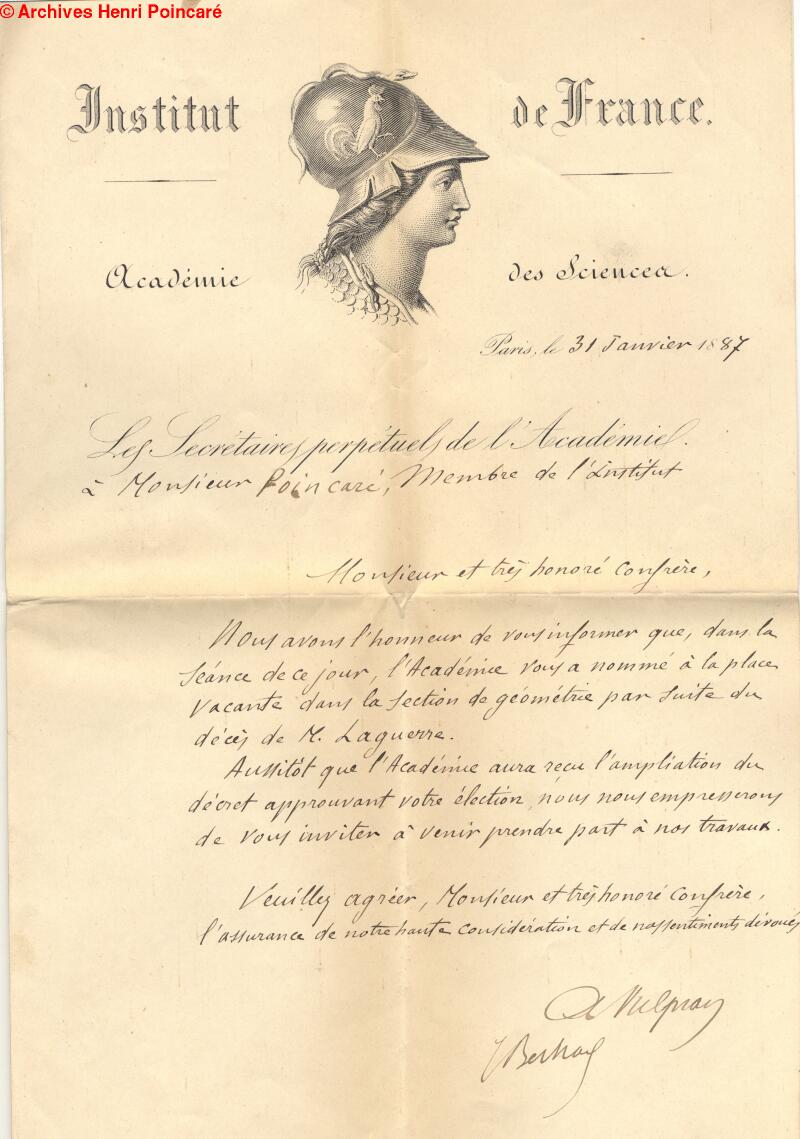 © Archives Henri Poincaré
Institut de France.
Académie des Sciences.
Paris, le 31 Janvier 1887
Les Secrétaires perpétuels de l'Académie.
à Monsieur Poincaré, Membre de l'Institut
Monsieur et très honoré Confrère,
Nous avons l'honneur de vous informer que, dans la
séance de ce jour, l'Académie vous a nommé à la place
vacante dans la section de géométrie par suite du
décès de M. Laguerre.
Aussitôt que l'Académie aura reçu l'ampliation du
décret approuvant votre élection, nous nous empresserons
de vous inviter à venir prendre part à nos travaux.
Veuillez agréer, Monsieur et très honoré Confrère,
l'assurance de notre haute considération et de nos sentiments dévoués
A Vulpian
J Bertrand